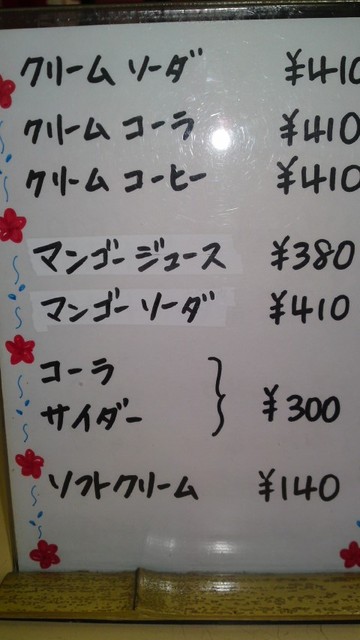 クリームソーダ ¥410
クリームコーラ ¥410
クリームコーヒー ¥410
マンゴージュース ¥380
マンゴーソーダ ¥410
コーラ
サイダー } ¥300
ソフトクリーム ¥140